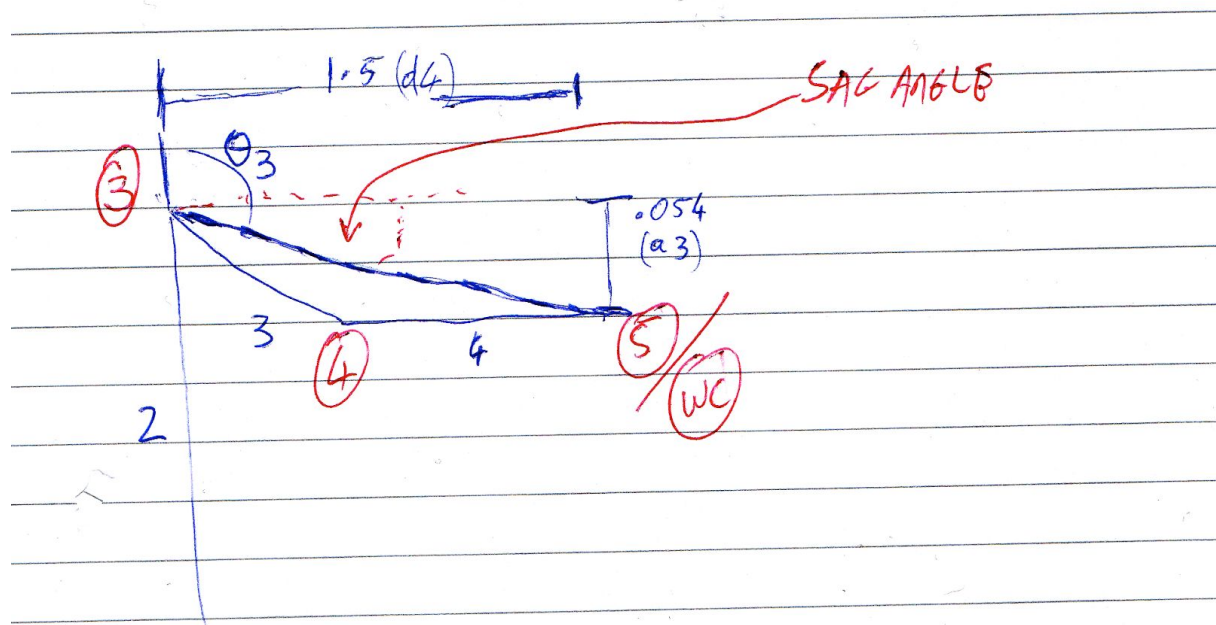 1.5 (d4)
SAG ANGLE
θ3
3
.054
(a3)
3
4
4
5
WC
2